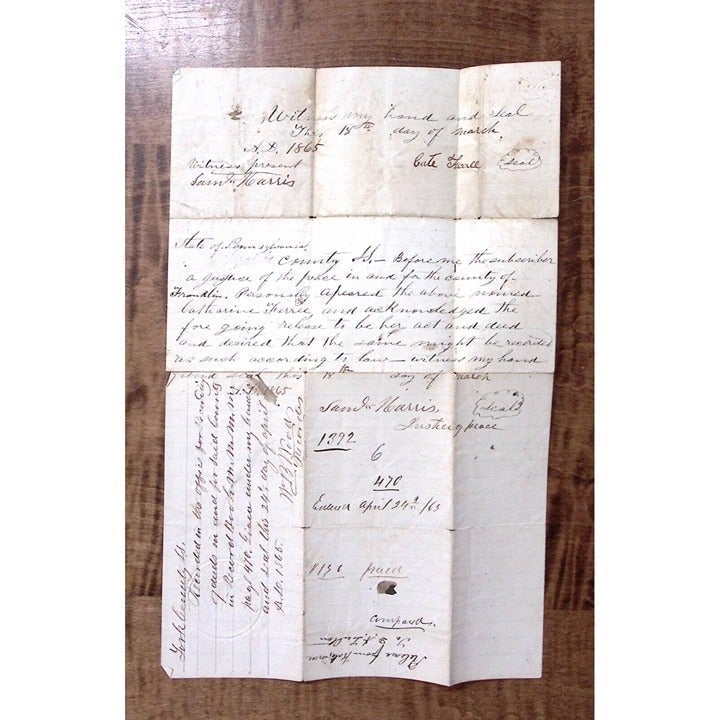 Witness my hand and seal
This 18th day of march
A.D. 1865
Witness present
Saml Harris
Cate Ferree
Seal
State of Pennsylvania,
County Ss.— Before me the subscriber
a justice of the peace in and for the county of
Franklin. Pasonaly apeared the above nomed
Catharine Ferree and acknowledged the
fore going release to be her act and deed
and desired that the same might be recorded
as such according to law— witness my hand
and seal this 18th day of march
A.D. 1865
Saml Harris
Seal
Justice of peace
1392
6
470
Entered April 24th /65
$1.50 paid
York County Ss.
Recorded in the office for recording
of deeds in and for said County
in Record Book M.M.M.M.
page 470. Given under my hand
and seal this 24th day of april
A.D. 1865.
Recorder
compared
Release from
To